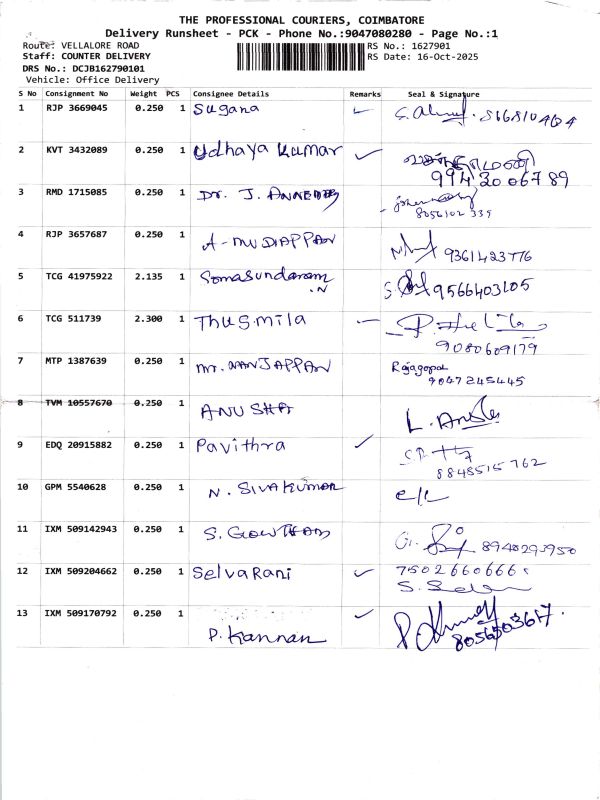 THE PROFESSIONAL COURIERS, COIMBATORE
Delivery Runsheet - PCK - Phone No.:9047080280 - Page No.:1
Route: VELLALORE ROAD
RS No.: 1627901
Staff: COUNTER DELIVERY
RS Date: 16-Oct-2025
DRS No.: DCJB162790101
Vehicle: Office Delivery
S No Consignment No Weight PCS Consignee Details Remarks Seal & Signature
1 RJP 3669045 0.250 1 Sugana
2 KVT 3432089 0.250 1 Udhaya Kumar ✓
9942006789
3 RMD 1715085 0.250 1 Dr. J.
8056102 339
4 RJP 3657687 0.250 1 A- MUDIAPPAN
9361423776
5 TCG 41975922 2.135 1 Somasundaram .N
9566403105
6 TCG 511739 2.300 1 Thusmila
9080609179
7 MTP 1387639 0.250 1 Mr. NANJAPPAN Rajagopal
9047245445
8 TVM 10557670 0.250 1 ANUSHA
9 EDQ 20915882 0.250 1 Pavithra ✓
8848515762
10 GPM 5540628 0.250 1 N. SIVAKUMAR
11 IXM 509142943 0.250 1 S. GOWTHAM
8940293950
12 IXM 509204662 0.250 1 SelvaRani ✓ 7502660666
13 IXM 509170792 0.250 1 P. Kannan ✓
8056503617